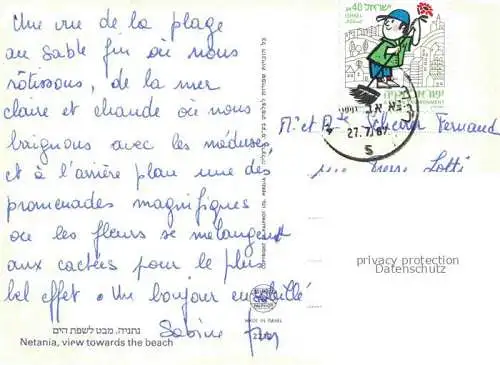 Une vue de la plage
au sable fin où nous
rôtissons, de la mer
claire et chaude où nous
baignons avec les méduses
et à l'arrière plan une des
promenades magnifiques
où les fleurs se mélangent
aux cactées pour le plus
bel effet. Un bonjour ensoleillé
Sabine
נתניה, מבט לשפת הים
Netania, view towards the beach
MADE IN ISRAEL
ישראל
ISRAEL
0.40
27.7.
5
M. et Fernand
rue Pierre Lotti
privacy protection
Datenschutz